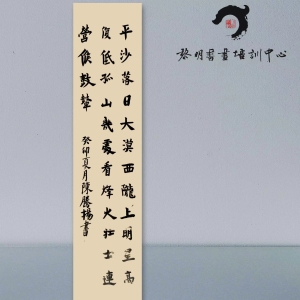 平沙落日大漠西隴上明星高
復低孤山幾處看烽火壯士連
營候鼓鼙
癸卯夏月陳勝揚書
黎明書畫培訓中心